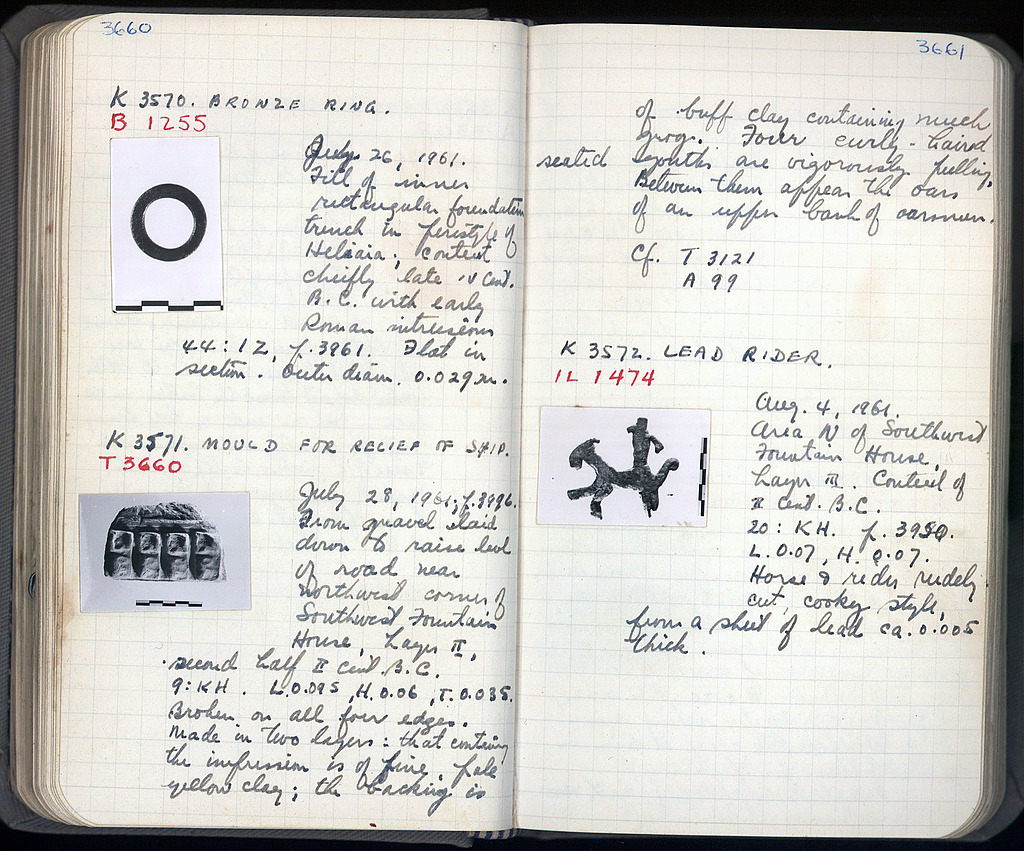 3660
K 3570. BRONZE RING.
B 1255
July 26, 1961.
Fill of inner
rectangular foundation
trench in peristyle of
Heliaia; context
cheifly late IV cent.
B.C. with early
Roman intrusions
44:12, p.3961. Flat in
section. Outer diam. 0.029m.
K 3571. MOULD FOR RELIEF OF SHIP.
T 3660
July 28, 1961; p.3996.
From gravel laid
down to raise level
of road near
northwest corner of
Southwest Fountain
House, Layer II,
second half II cent. B.C.
9:KH. L.0.095, H.0.06, T.0.035.
Broken on all four edges.
Made in two layers: that containing
the impression is of fine, pale
yellow clay; the backing is
3661
of buff clay containing much
grog. Four curly-haired
seated youths are vigorously pulling.
Between them appear the oars
of an upper bank of oarsmen.
Cf. T 3121
A 99
K 3572. LEAD RIDER.
IL 1474
Aug. 4, 1961.
Area N of Southwest
Fountain House,
Layer III. Context of
II cent. B.C.
20: KH. p. 3950.
L. 0.07, H. 0.07.
Horse & rider rudely
cut, cooky style,
from a sheet of lead ca. 0.005
thick.